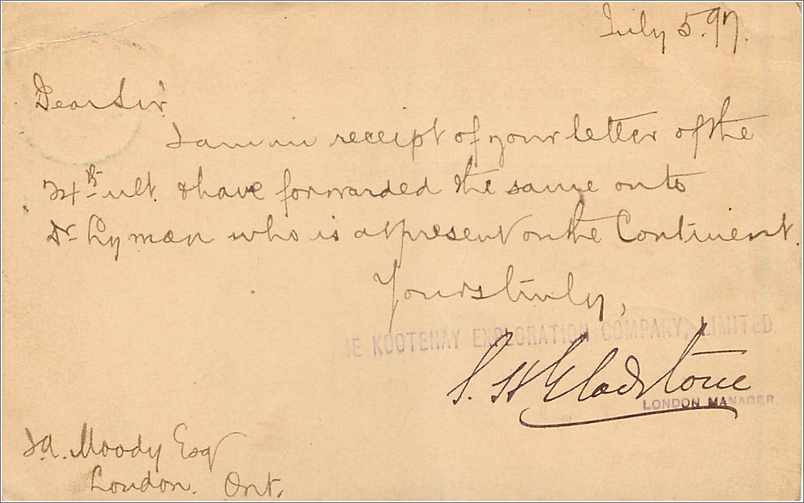 July 5. 97.
Dear Sir
I am in receipt of your letter of the
24th ult. & have forwarded the same on to
Dr Lyman who is at present on the Continent.
Yours truly,
THE KOOTENAY EXPLORATION COMPANY, LIMITED
S. H Gladstone
LONDON MANAGER
Moody Esq
London. Ont.